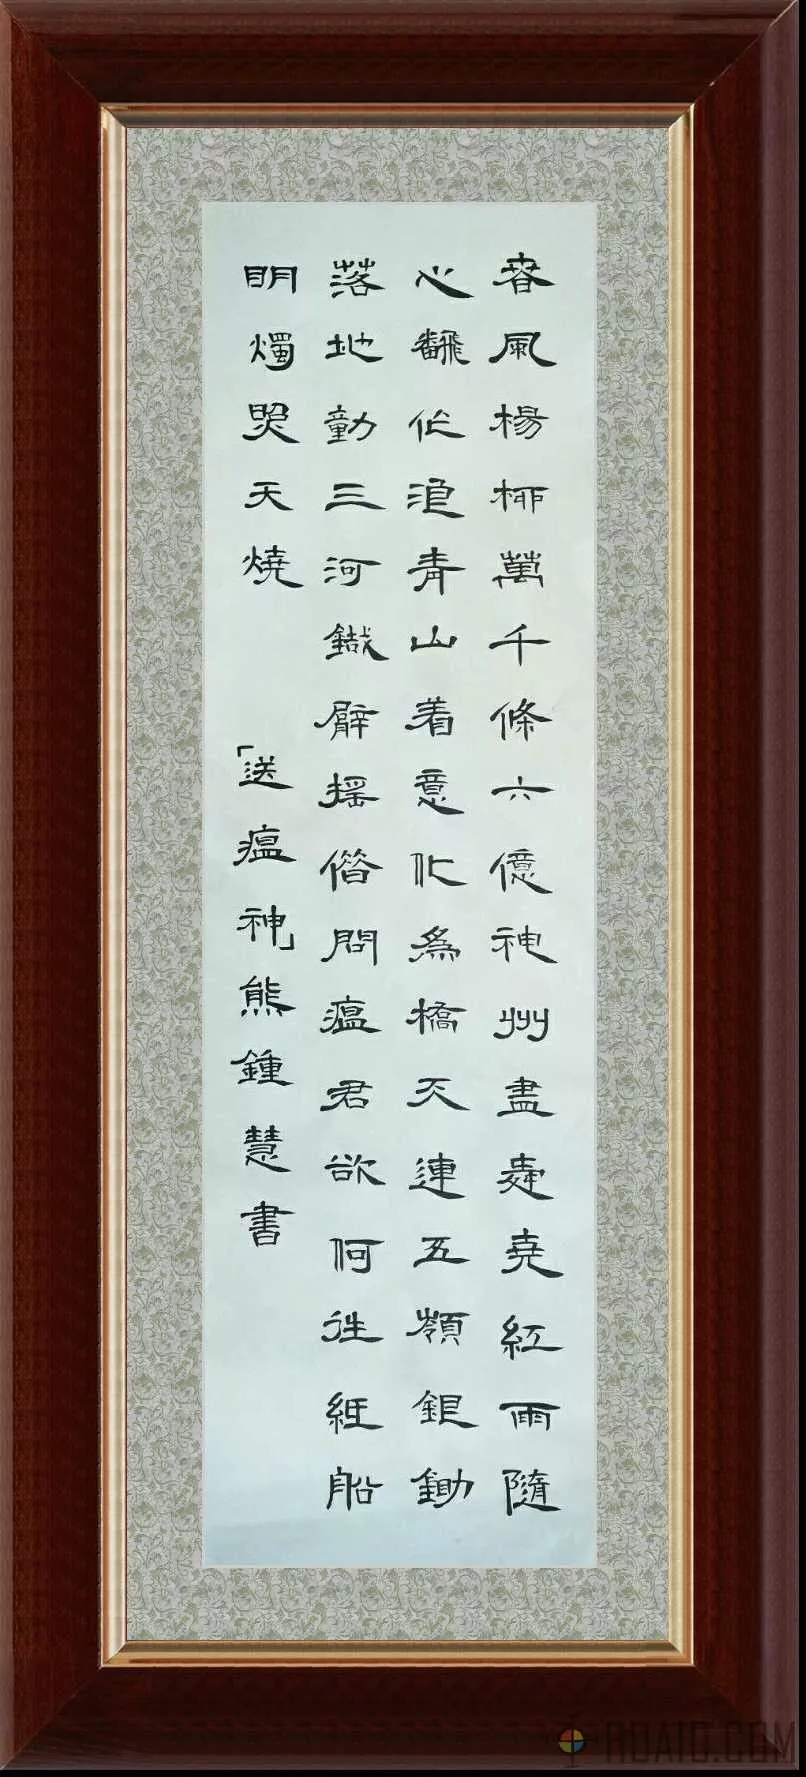 春風楊柳萬千條六億神州盡舜堯紅雨隨
心飜作浪青山着意化為橋天連五嶺銀鋤
落地動三河鐵臂搖借問瘟君欲何往紙船
明燭照天燒 「送瘟神」熊鍾慧書